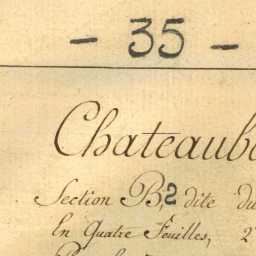 - 35 -
Chateaub
Section B2 dite du
En Quatre Feuilles, 2